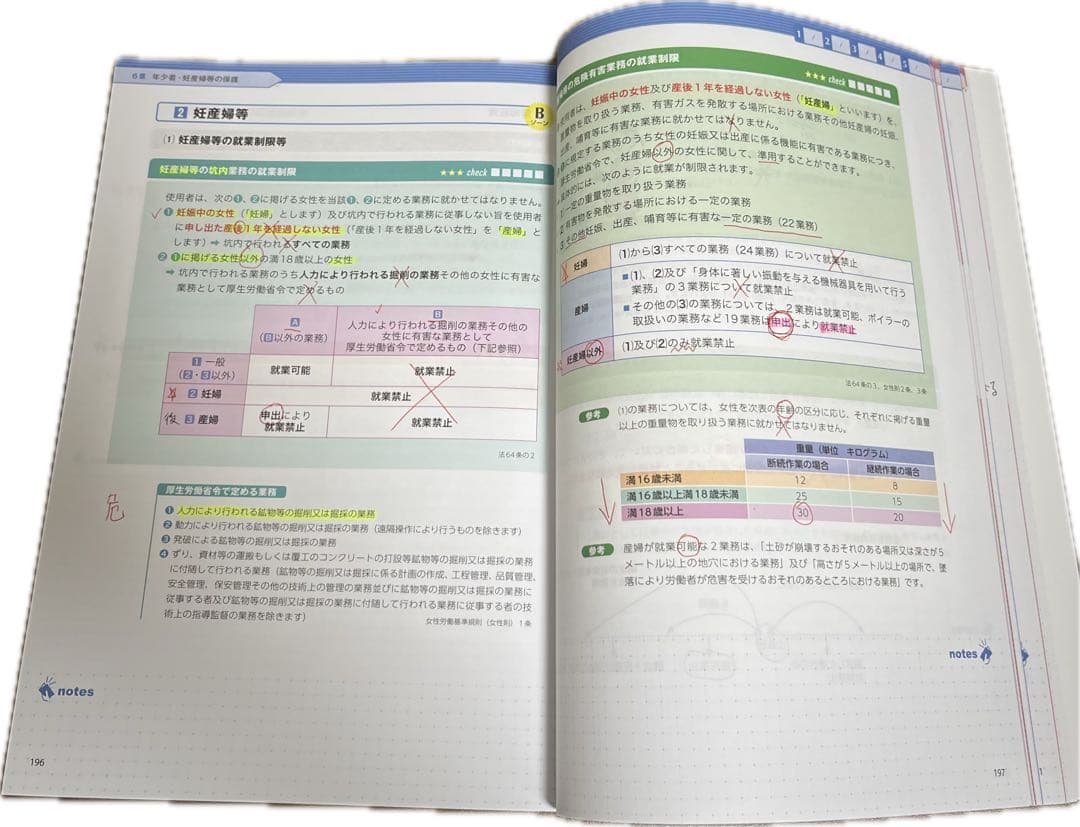 6章 年少者・妊産婦等の保護
2 妊産婦等
B
ゾーン
(1) 妊産婦等の就業制限等
妊産婦等の坑内業務の就業制限
★★★ check
使用者は、次の❶、❷に掲げる女性を当該❶、❷に定める業務に就かせてはなりません。
❶ 妊娠中の女性(「妊婦」とします)及び坑内で行われる業務に従事しない旨を使用者
に申し出た産後1年を経過しない女性(「産後1年を経過しない女性」を「産婦」と
します) ➡ 坑内で行われるすべての業務
❷ ❶に掲げる女性以外の満18歳以上の女性
➡ 坑内で行われる業務のうち人力により行われる掘削の業務その他の女性に有害な
業務として厚生労働省令で定めるもの
A
(B以外の業務)
B
人力により行われる掘削の業務その他の
女性に有害な業務として
厚生労働省令で定めるもの(下記参照)
1 一般
(2・3以外)
就業可能
就業禁止
2 妊婦
就業禁止
後 3 産婦
申出により
就業禁止
就業禁止
法64条の2
危
厚生労働省令で定める業務
❶ 人力により行われる鉱物等の掘削又は掘採の業務
❷ 動力により行われる鉱物等の掘削又は掘採の業務(遠隔操作により行うものを除きます)
❸ 発破による鉱物等の掘削又は掘採の業務
❹ ずり、資材等の運搬もしくは覆工のコンクリートの打設等鉱物等の掘削又は掘採の業務
に付随して行われる業務(鉱物等の掘削又は掘採に係る計画の作成、工程管理、品質管理、
安全管理、保安管理その他の技術上の管理の業務並びに鉱物等の掘削又は掘採の業務に
従事する者及び鉱物等の掘削又は掘採の業務に付随して行われる業務に従事する者の技
術上の指導監督の業務を除きます)
女性労働基準規則(女性則)1条
notes
196
1 / 2 / 3 / 4 / 5 /
等の危険有害業務の就業制限
★★★ check
使用者は、妊娠中の女性及び産後1年を経過しない女性(「妊産婦」といいます)を、
重量物を取り扱う業務、有害ガスを発散する場所における業務その他妊産婦の妊娠、
出産、哺育等に有害な業務に就かせてはなりません。
に規定する業務のうち女性の妊娠又は出産に係る機能に有害である業務につき、
厚生労働省令で、妊産婦以外の女性に関して、準用することができます。
具体的には、次のように就業が制限されます。
一定の重量物を取り扱う業務
有害物を発散する場所における一定の業務
その他妊娠、出産、哺育等に有害な一定の業務(22業務)
妊婦
(1)から(3)すべての業務(24業務)について就業禁止
産婦
■(1)、(2)及び「身体に著しい振動を与える機械器具を用いて行う
業務」の3業務について就業禁止
■その他の(3)の業務については、2業務は就業可能、ボイラーの
取扱いの業務など19業務は申出により就業禁止
妊産婦以外
(1)及び(2)のみ就業禁止
法64条の3、女性則2条、3条
参考 (1)の業務については、女性を次表の年齢の区分に応じ、それぞれに掲げる重量
以上の重量物を取り扱う業務に就かせてはなりません。
重量(単位 キログラム)
断続作業の場合 継続作業の場合
満16歳未満 12 8
満16歳以上満18歳未満 25 15
満18歳以上 30 20
参考 産婦が就業可能な2業務は、「土砂が崩壊するおそれのある場所又は深さが5
メートル以上の地穴における業務」及び「高さが5メートル以上の場所で、墜
落により労働者が危害を受けるおそれのあるところにおける業務」です。
notes
197